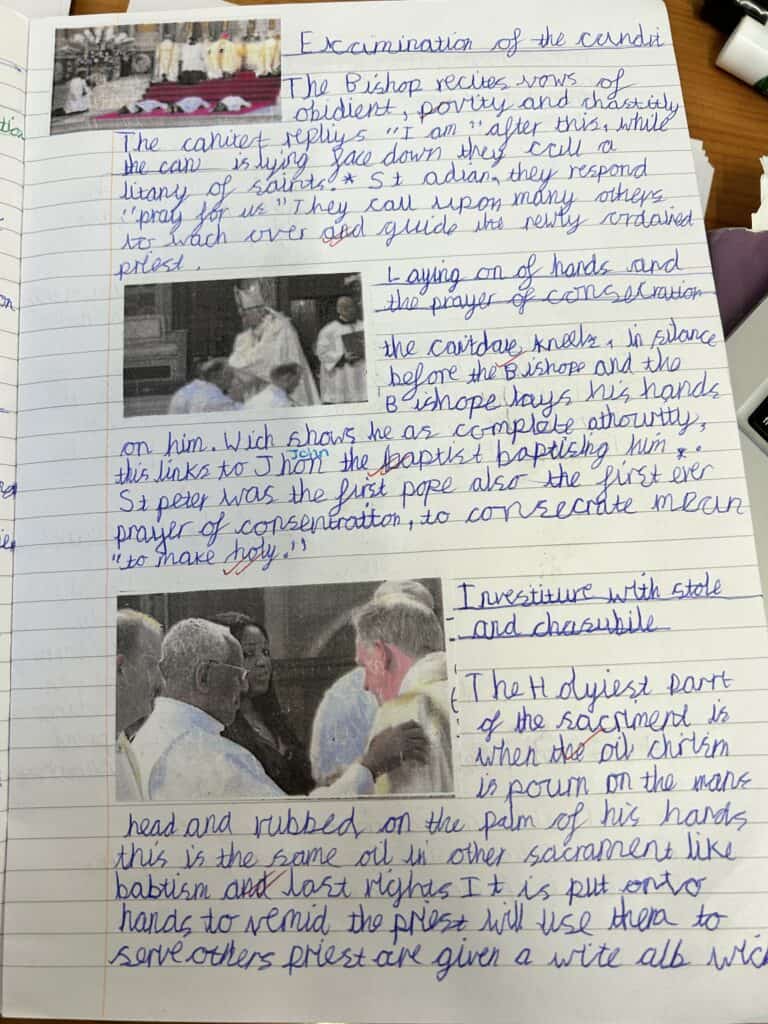 Excimination of the cundit
The Bishop recites vows of
obidient, povity and chastitly
The canitet repliys "I am" after this, while
the can is lying face down they call a
litany of saints.* St adian, they respond
"pray for us" They call upon many others
to wach over and guide the newly ordained
priest.
Laying on of hands and
the prayer of consecration
the canitdate kneels, in silance
before the Bishope and the
Bishope lays his hands
on him. Wich shows he as complete athourtty,
John
this links to Jhon the baptist baptising him *.
St peter was the first pope also the first ever
prayer of consentration, to consecrate mean
"to make holy."
Investiture with stole
and chasubile
The Holyiest part
of the sacriment is
when the oil chrism
is pourn on the mans
head and rubbed on the palm of his hands
this is the same oil in other sacrament like
babtism and last rights It is put onto
hands to remid the priest will use them to
serve others priest are given a wite alb wich